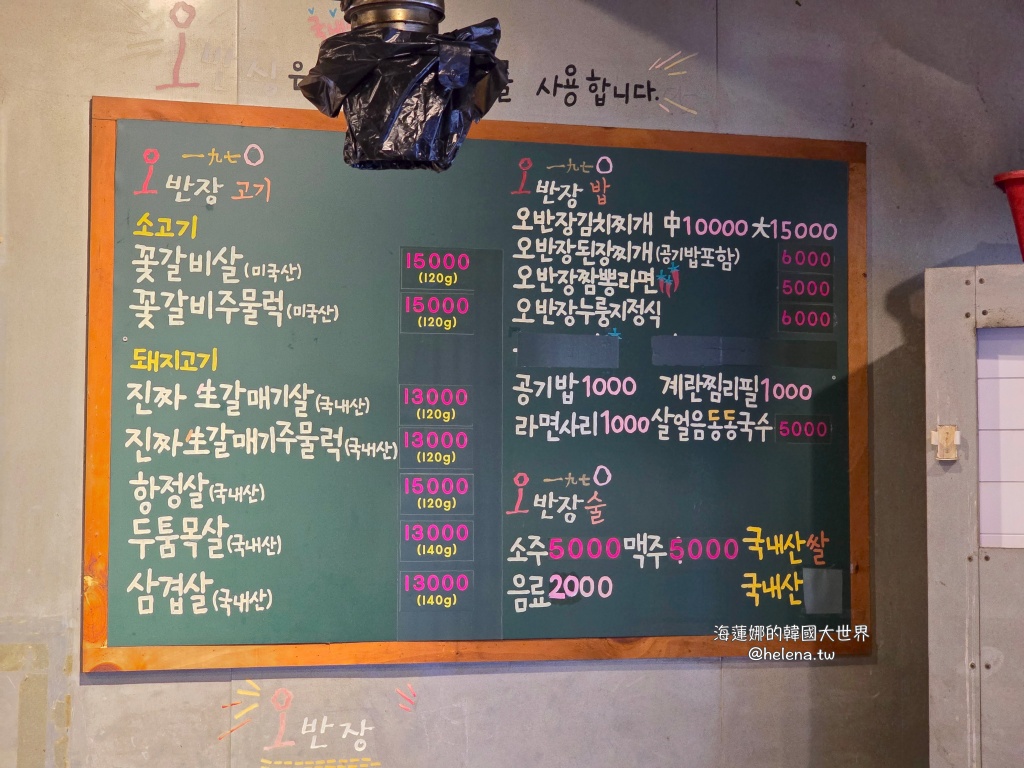 사용합니다.
一九七0
오반장 고기
소고기
꽃갈비살(미국산) 15000 (120g)
꽃갈비주물럭(미국산) 15000 (120g)
돼지고기
진짜 生갈매기살(국내산) 13000 (120g)
진짜生갈매기주물럭(국내산) 13000 (120g)
항정살(국내산) 15000 (120g)
두툼목살(국내산) 13000 (140g)
삼겹살(국내산) 13000 (140g)
一九七0
오반장 밥
오반장김치찌개 中10000 大15000
오반장된장찌개(공기밥포함) 6000
오반장짬뽕라면 5000
오반장누룽지정식 6000
공기밥1000 계란찜리필1000
라면사리1000 살얼음동동국수 5000
一九七0
오반장술
소주5000 맥주5000 국내산쌀
음료2000 국내산
海蓮娜的韓國大世界
@helena.tw
오반장